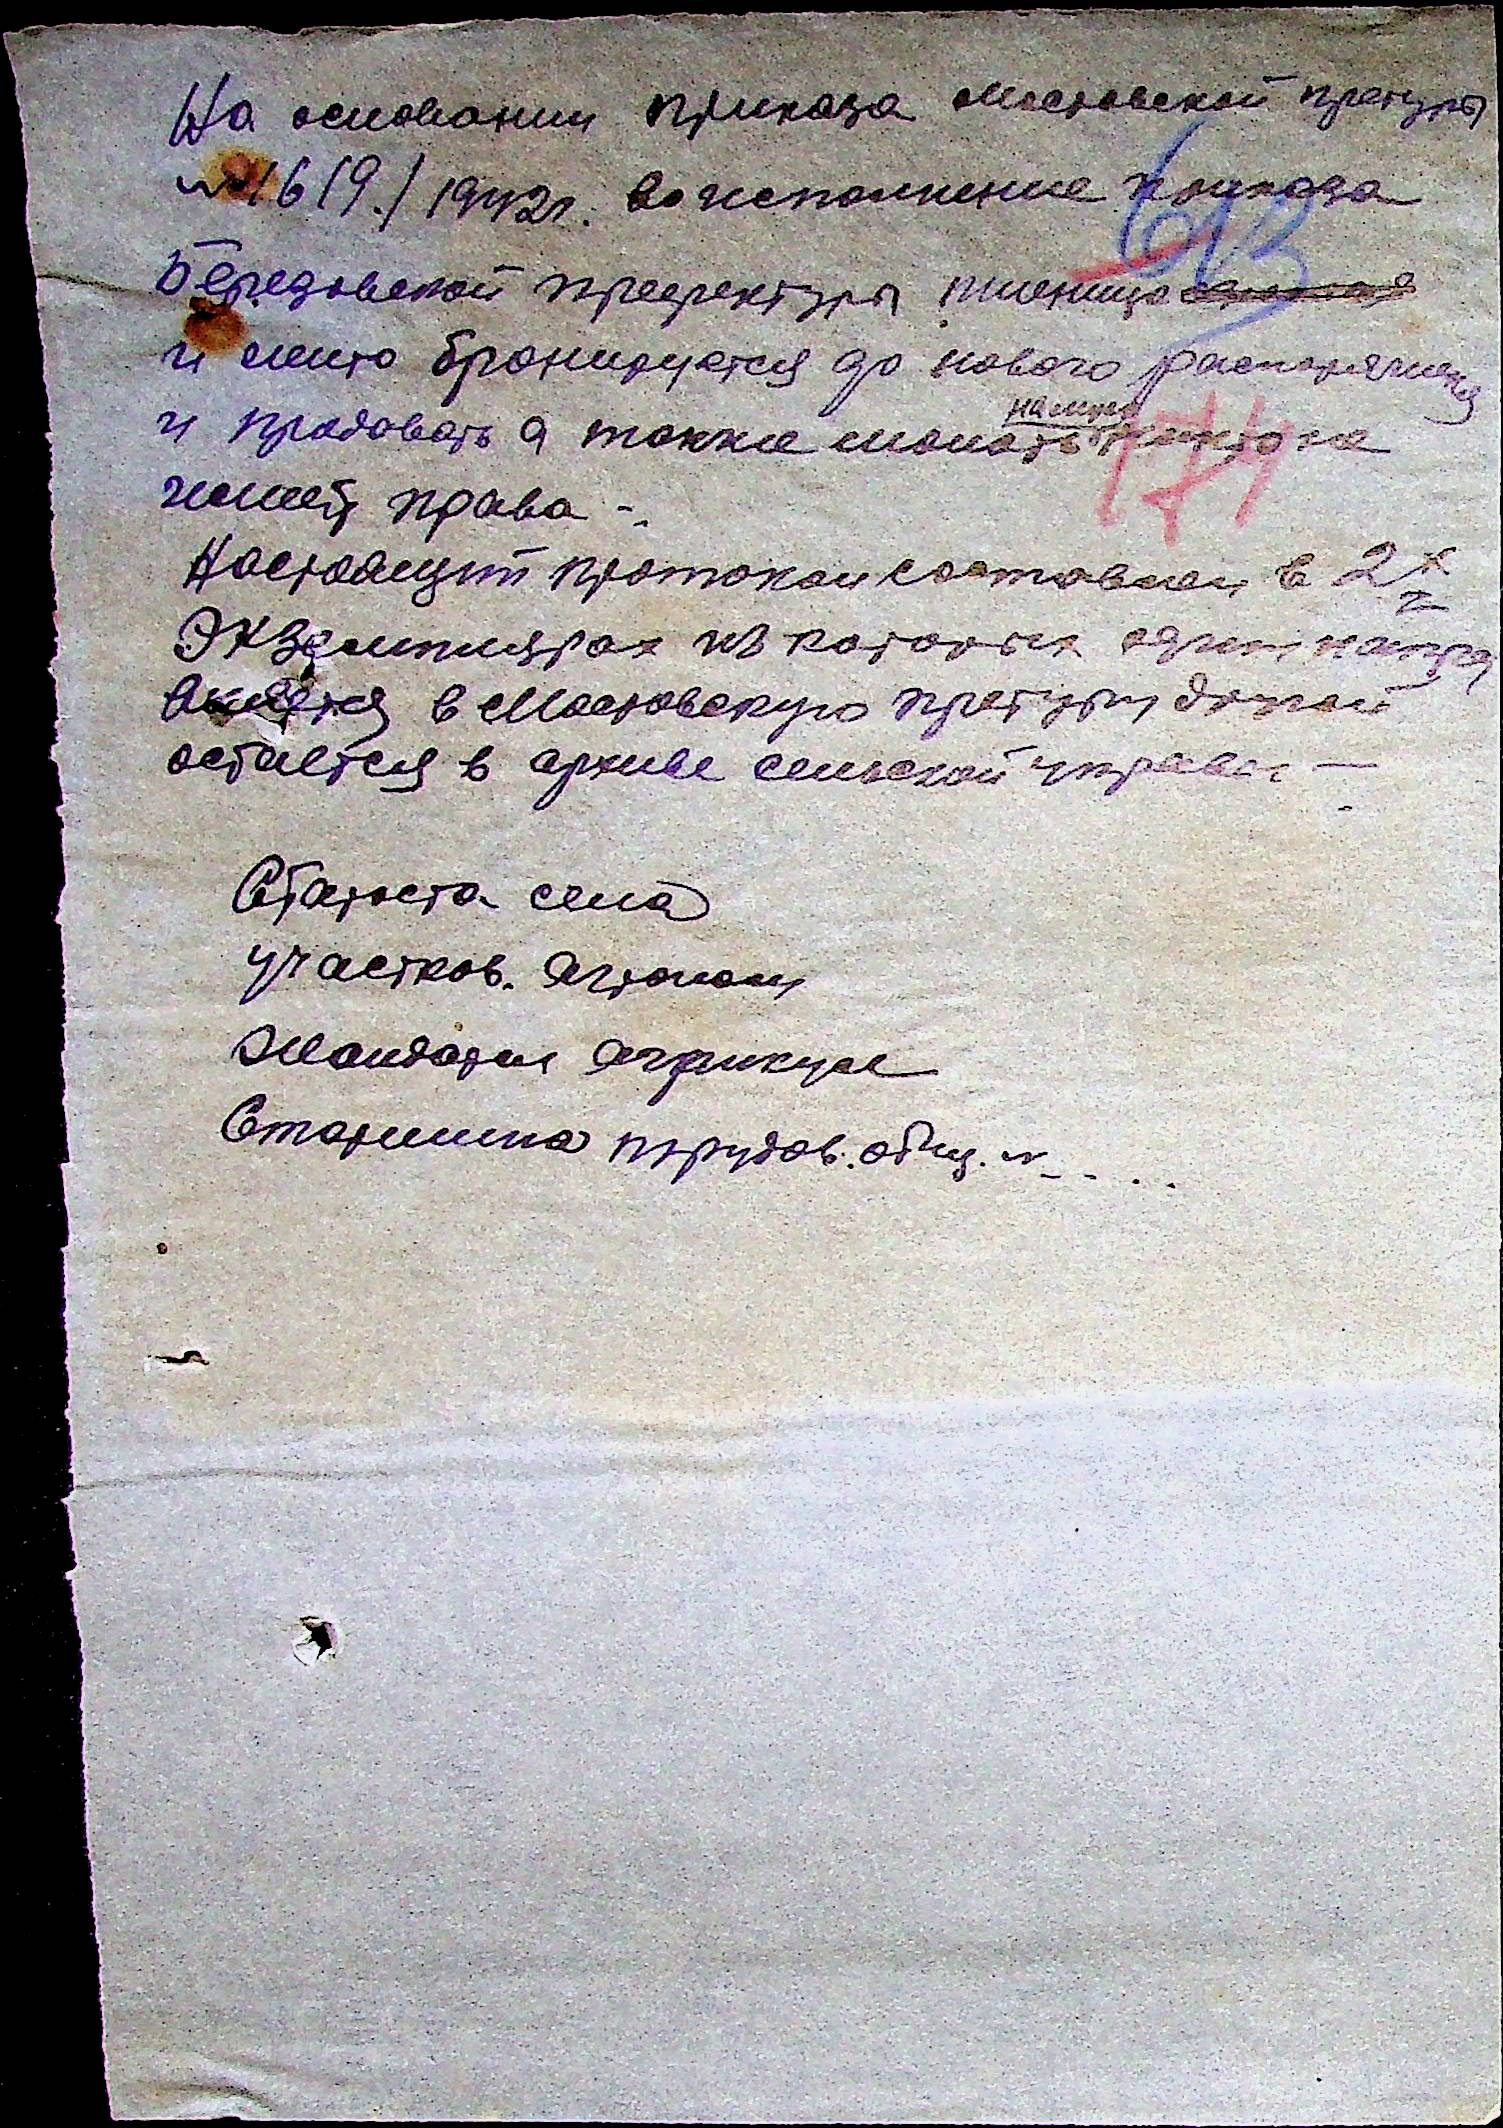 На основании приказа Мостовской претуры
№ 1619./1942г. во исполнение приказа
Березовской префектуры пшеница
и жито бронируется до нового распоряжения
и продавать а также молоть на муку никто не
имеет права -.
Настоящий протокол составлен в 2х
экземплярах из которых один напра
вляется в Мостовскую претуру другой
остается в архиве сельской управы —
Староста села
участков. Агроном
Мандатал Агрикул
Старшина трудов. общ. № _ _ . .
613
174